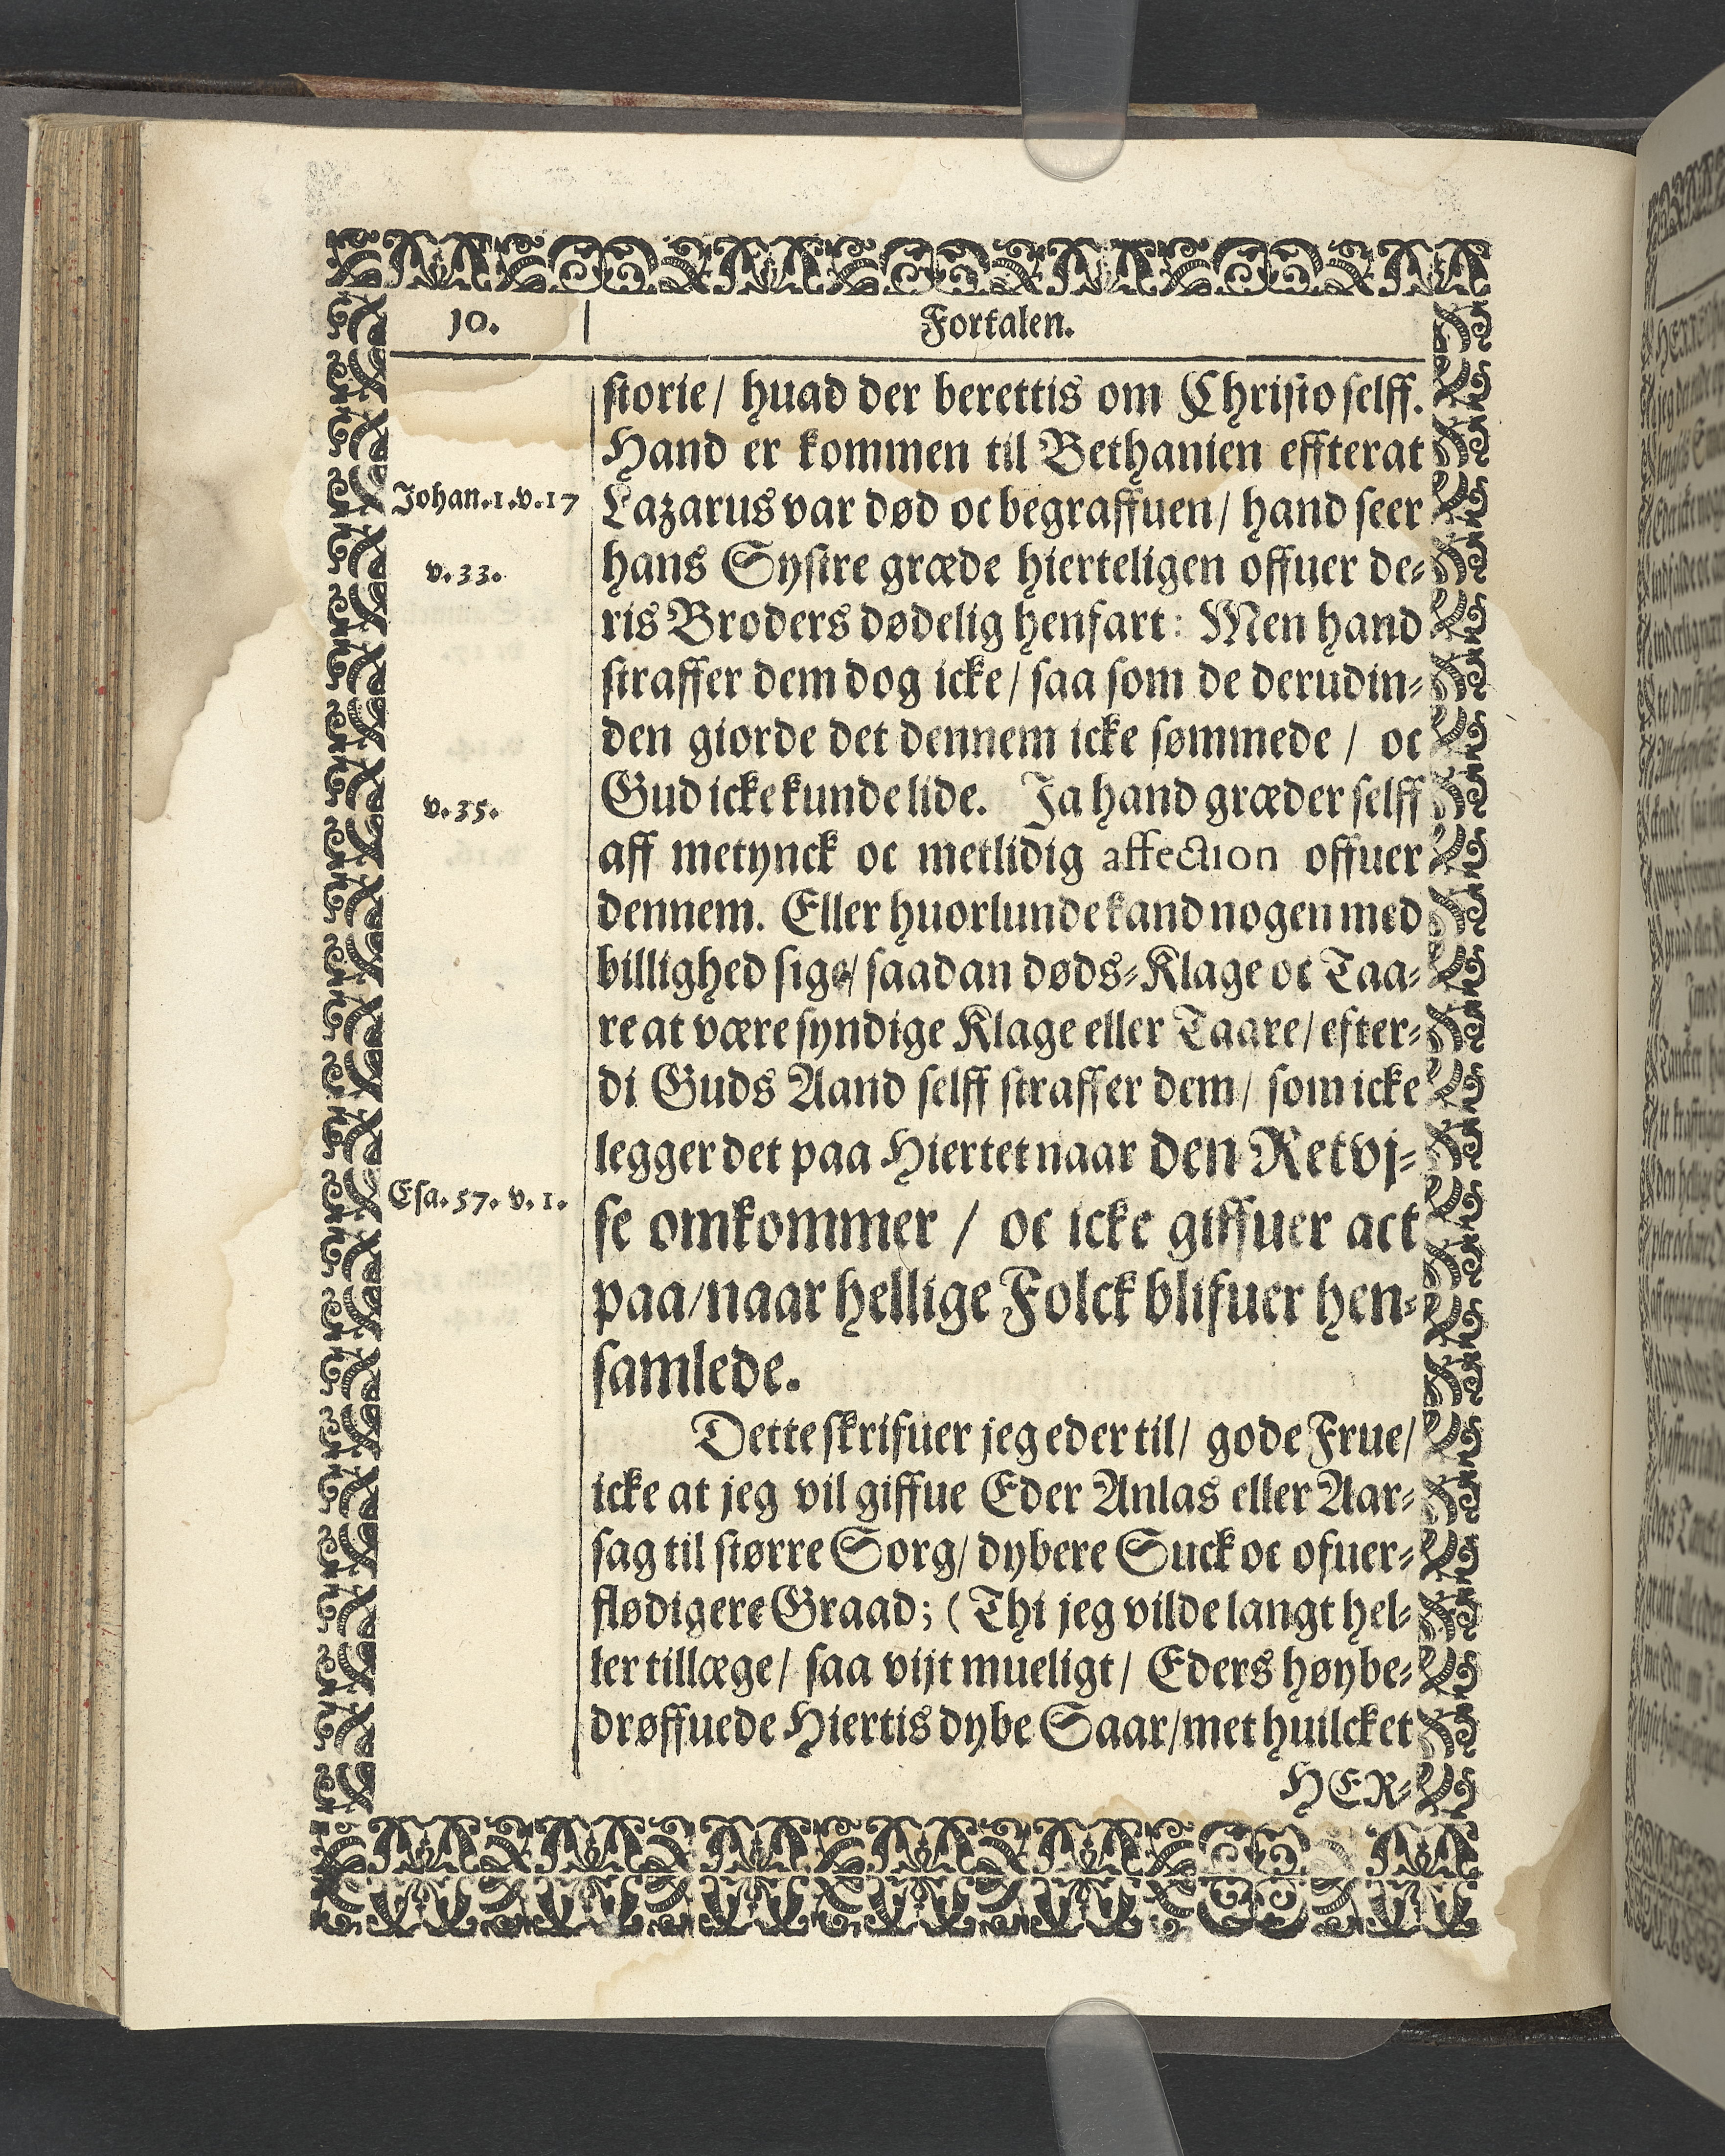 10.
Fortalen.
storie / huad der berettis om Christo selff.
Hand er kommen til Bethanien effterat
Johan.1.v.17
Lazarus var død oc begraffuen / hand seer
v. 33.
hans Systre græde hierteligen offuer de-
ris Broders dødelig henfart: Men hand
straffer dem dog icke / saa som de derudin-
den giorde det dennem icke sømmede / oc
v. 35.
Gud icke kunde lide. Ja hand græder selff
aff metynck oc metlidig affection offuer
dennem. Eller huorlunde kand nogen med
billighed sige / saadan døds-Klage oc Taa-
re at være syndige Klage eller Taare / efter-
di Guds Aand selff straffer dem / som icke
legger det paa Hiertet naar den Retvj-
Esa. 57. v. 1.
se omkommer / oc icke giffuer act
paa / naar hellige Folck blifuer hen-
samlede.
Dette skrifuer jeg eder til / gode Frue /
icke at jeg vil giffue Eder Anlas eller Aar-
sag til større Sorg / dybere Suck oc ofuer-
flødigere Graad; ( Thi jeg vilde langt hel-
ler tillæge / saa vijt mueligt / Eders høybe-
drøffuede Hiertis dybe Saar / met huilcket
HER-